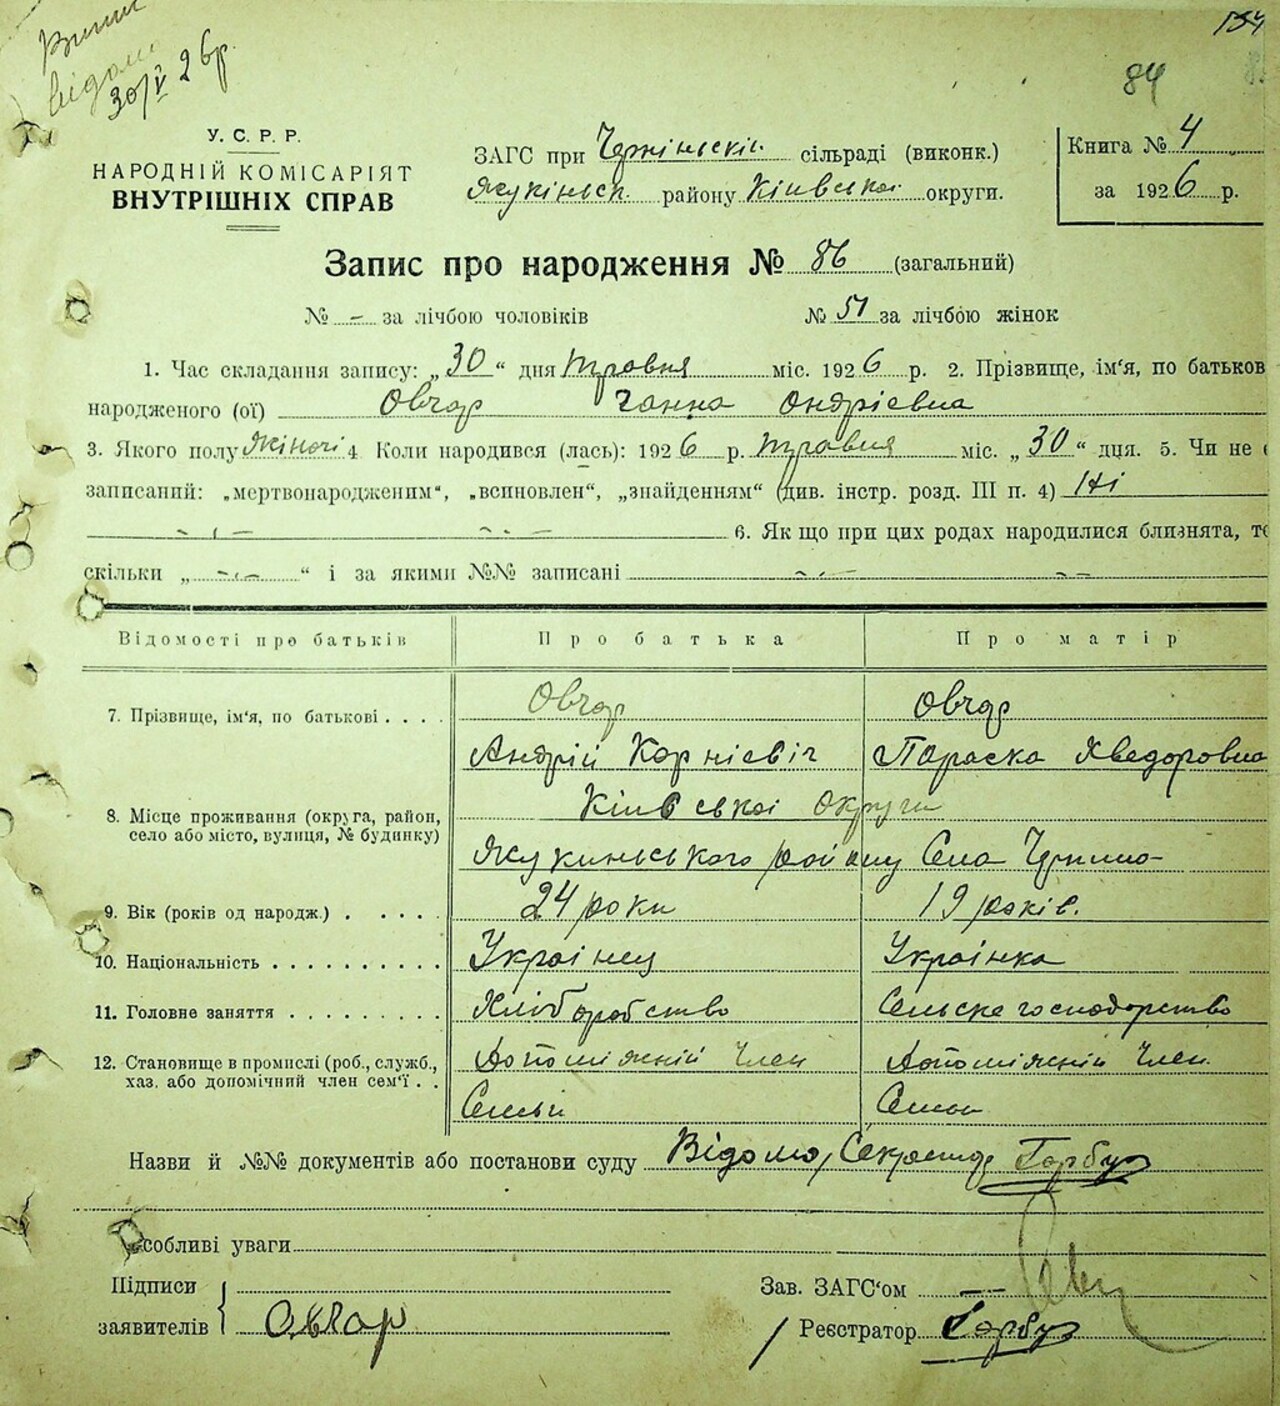 154
84
відом
30/V 26р.
У. С. Р. Р.
НАРОДНІЙ КОМІСАРІЯТ
ВНУТРІШНІХ СПРАВ
ЗАГС при сільраді (виконк.)
району Київської округи.
Книга № 4
за 1926 р.
Запис про народження № 86 (загальний)
№ – за лічбою чоловіків № 51 за лічбою жінок
1. Час складання запису: „30“ дня травня міс. 1926 р. 2. Прізвище, ім'я, по батьков
народженого (ої) Овчар Ганна Ондрієвна
3. Якого полу жіночі 4 Коли народився (лась): 1926 р. травня міс. „30“ дня. 5. Чи не
записаний: „мертвонародженим“, „всиновлен“, „знайденням“ (див. інстр. розд. III п. 4) Ні
6. Як що при цих родах народилися близнята, то
скільки „ “ і за якими №№ записані
Відомості про батьків Про батька Про матір
7. Прізвище, ім'я, по батькові . . . . Овчар Овчар
Андрій Корнієвіч Параска Хведоровна
8. Місце проживання (округа, район,
село або місто, вулиця, № будинку)
Київської округи
району Села
9. Вік (років од народж.) . . . . . 24 роки 19 років.
10. Національність . . . . . . . . . . Українец Українка
11. Головне заняття . . . . . . . . . Хліборобство Сельске господорство
12. Становище в промислі (роб., служб.,
хаз. або допомічний член сем'ї . .
Допоміжній Член Допоміжній Член
Семьи Семьи
Назви й №№ документів або постанови суду Відомо, Секретар Горбуз
Особливі уваги
Підписи
заявителів Овчар
Зав. ЗАГС'ом
Реєстратор Горбуз